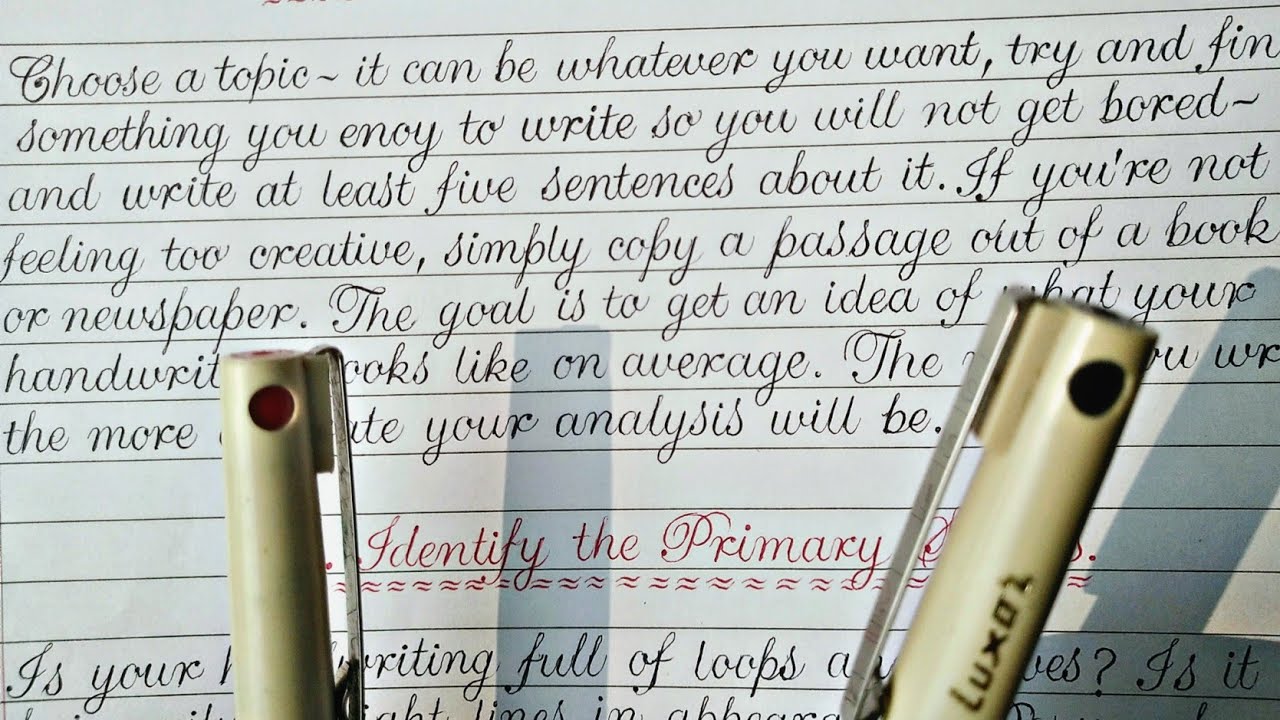 Choose a topic~ it can be whatever you want, try and fin
something you enoy to write so you will not get bored~
and write at least five sentences about it. If you're not
feeling too creative, simply copy a passage out of a book
or newspaper. The goal is to get an idea of what your
handwrit ooks like on average. The ou wr
the more ate your analysis will be.
. Identify the Primary .
Is your writing full of loops a ves? Is it
ight lines in appeara
Luxor